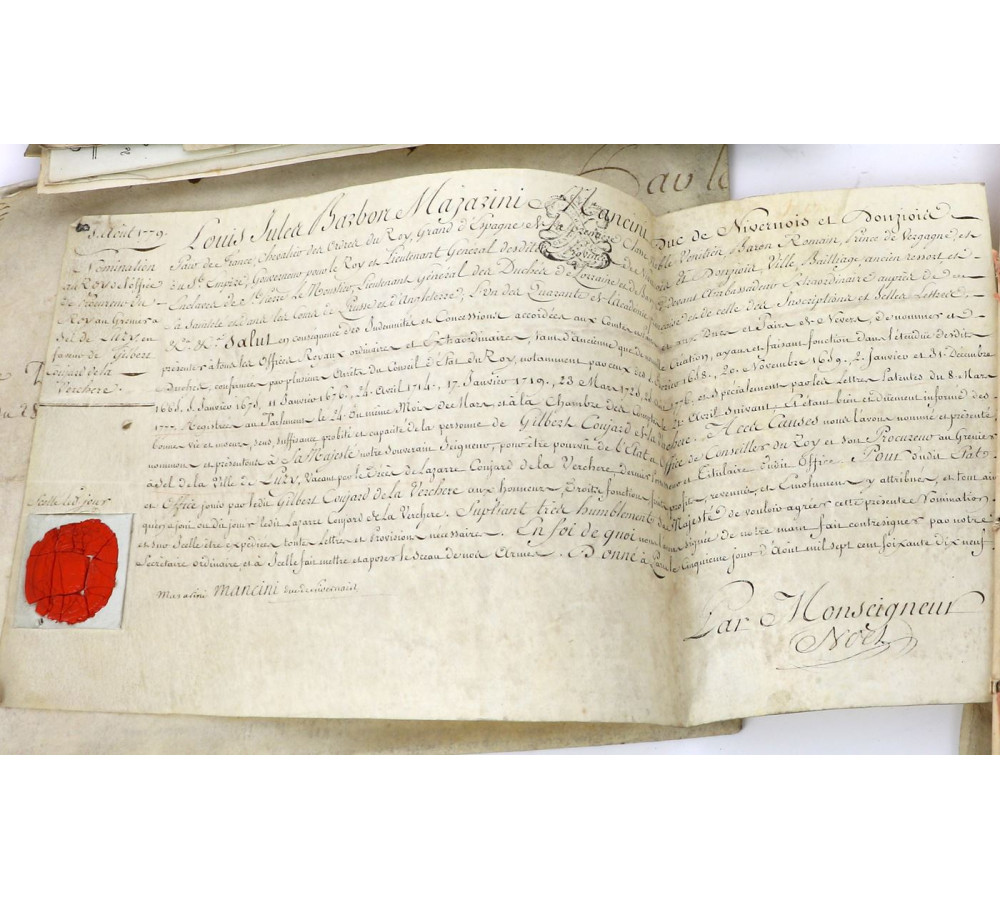 5. Août 1779.
Nomination
au Roy de l'office
de Procureur du
Roy au Grenier a
sel de Luzy en
faveur de Gilbert
Coujard de la
Verchere.
Louis Jules Barbon Mazarini Mancini Duc de Nivernois et Donziois
Pair de France, Chevalier des Ordres du Roy, Grand d'Espagne, Noble Vénitien, Baron Romain, Prince de Vergagne, et
du St. Empire, Gouverneur pour le Roy et Lieutenant Général desdits de Donziois, Ville, Bailliage ancien ressort et
Enclaves de St. Pierre le Monstier, Lieutenant Général des Duchés de Lorraine et de devant Ambassadeur Extraordinaire auprès de
la Sainteté et dans les Cours de Prusse et d'Angleterre, l'un des Quarante de l'académie et de celle des Inscriptions et Belles Lettres,
Salut en conséquence des Indemnités et Concessions accordées aux Comtes et aux Ducs et Pairs de Nevers, de nommer et
présenter à tous les Offices Royaux ordinaires et Extraordinaires, tant d'ancienne que de Création, ayant et faisant fonction dans l'étendue desdit
Duchés, confirmées par plusieurs Arrêts du Conseil d'Etat du Roy, notamment par ceux des 1658, 20. Novembre 1659, 2. Janvier et 31. Décembre
1665, 5. Janvier 1675, 11 Janvier 1676, 24. Avril 1714, 17. Janvier 1719, 23 Mars 1725, 1776, et spécialement par les Lettres Patentes du 8. Mars
1777. Registrées au Parlement le 24. du même Mois de Mars, et à la Chambre des Comptes le Avril suivant, Et étant bien et duement informé des
bonne vie et moeurs, sens, suffisance probité et capacité de la personne de Gilbert Coujard de la Verchere. A ces Causes nous l'avons nommé et présenté
nommons et présentons à Sa Majesté notre Souverain Seigneur, pour être pourvu de l'Etat et Office de Conseiller du Roy et son Procureur au Grenier
à sel de la Ville de Luzy, Vacant par le Décès de Lazare Coujard de la Verchere dernier et Titulaire dudit Office. Pour dudit Etat
et Office jouir par ledit Gilbert Coujard de la Verchere aux honneurs, Droits, fonctions, profits, revenus, et Emolumens y attribués, et tout ainsi
qu'en a joui ou dû jouir ledit Lazare Coujard de la Verchere. Supliant très humblement Sa Majesté de vouloir agréer cette présente Nomination
et sur Icelle être expédiées toutes Lettres et Provisions nécessaires. En foi de quoi nous l'avons signée de notre main fait contresigner par notre
Secrétaire ordinaire et à Icelle fait mettre et aposer le Sceau de nos Armes. Donné à Paris le cinquième jour d'Août mil sept cent soixante dix neuf
Scellé led. jour
Mazarini mancini duc de nivernois
Par Monseigneur
Noël